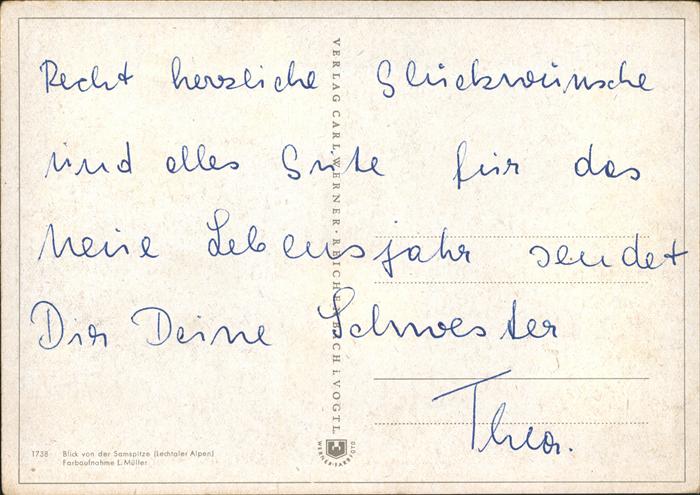 Recht herzliche Glückwünsche
und alles Gute für das
neue Lebensjahr sendet
Dir Deine Schwester
Thea.
VERLAG CARL WERNER · REICHENBACH I. VOGTL.
WERNER-FARBFOTO
1738 Blick von der Samspitze (Lechtaler Alpen)
Farbaufnahme L. Müller